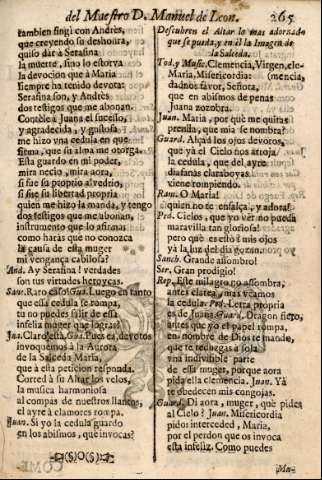 del Maestro D. Manuel de Leon. 265
tambien fingi con Andrès,
que creyendo su deshonra,
quiso dar à Serafina
la muerte, sino lo estorva
la devocion que à Maria
siempre ha tenido devota:
Serafina son, y Andrès
dos testigos que me abonan.
Contèle à Juana el sucesso,
y agradecida, y gustosa
me hizo vna cedula en que
firma, que su alma me otorga.
Esta guardo en mi poder,
mira necio, mira aora,
si fue su proprio alvedrio,
si fue su libertad propria
quien me hizo la manda, y tengo
dos testigos que me abonan,
instrumento que lo afirma:
como haràs que no conozca
la causa de esta muger
mi vengança cabilosa?
And. Ay Serafina! verdades
son tus virtudes heroycas.
Sanc. Raro caso! Gua. Luego en tanto
que essa cedula se rompa,
tu no puedes salir de essa
infeliz muger que logras.
Jua. Claro està. Gua. Pues ea, devotos
invoquemos à la Aurora
de la Salceda Maria,
que à esta peticion responda.
Corred à su Altar los velos,
la musica harmoniosa
al compàs de nuestros llantos,
el ayre à clamores rompa.
Juan. Si yo la cedula guardo
en los abismos, què invocas?
Descubren el Altar lo mas adornado
que se pueda, y en èl la Imagen de
la Salceda.
Tod. y Music. Clemencia, Virgen, cle-
Maria, Misericordia: (mencia,
dadnos favor, Señora,
que en abismos de penas
Juana zozobra.
Juan. Maria, por què me quitas
prenda, que mia se nombra?
Guard. Alçad los ojos devotos,
que yà el Cielo nos arroja
la cedula, que del ayre
diafanas claraboyas
viene rompiendo.
Ram. O Maria!
quien no te ensalça, y adora!
Ped. Cielos, que yo vèr no pueda
maravilla tan gloriosa!
pero què es esto? mis ojos
yà la luz del dia gozan.
Sanch. Grande assombro!
Ser. Gran prodigio!
Rep. Este milagro nos assombra,
antes clarea, mas veamos
la cedula: Ped. Letra propria
es de Juana. Guard. Dragon fiero,
antes que yo el papel rompa,
en nombre de Dios te mando,
que te recojas à sola
vna indivisible parte
de essa muger, porque aora
pida ella clemencia. Juan. Yà
te obedecen mis congojas.
Guard. Di aora, muger, què pides
al Cielo? Juan. Misericordia
pido: interceded, Maria,
por el perdon que os invoca
esta infeliz. Como puedes
Ma-